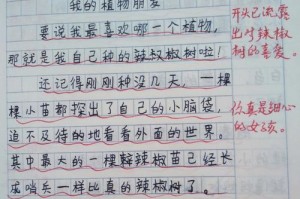 我的植物朋友
要说我最喜欢哪一个植物,
那就是我自己种的辣椒树啦!
还记得刚刚种没几天,一棵
棵小苗都探出了自己的小脑袋,
迫不及待的地看看外面的世界。
其中最大的一棵辣椒苗已经长
成哨兵一样比真的辣椒树了。
开头已流露
出对辣椒
树的喜爱。
你真是细心
的女孩。